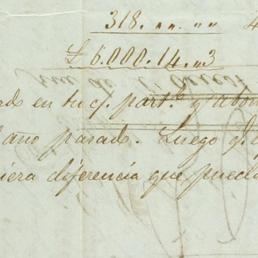 318. „ „ 4
£ 6.000.14.„3
en su cy. part.r y abon
año pasado. Luego q.
iera diferencia que pueda